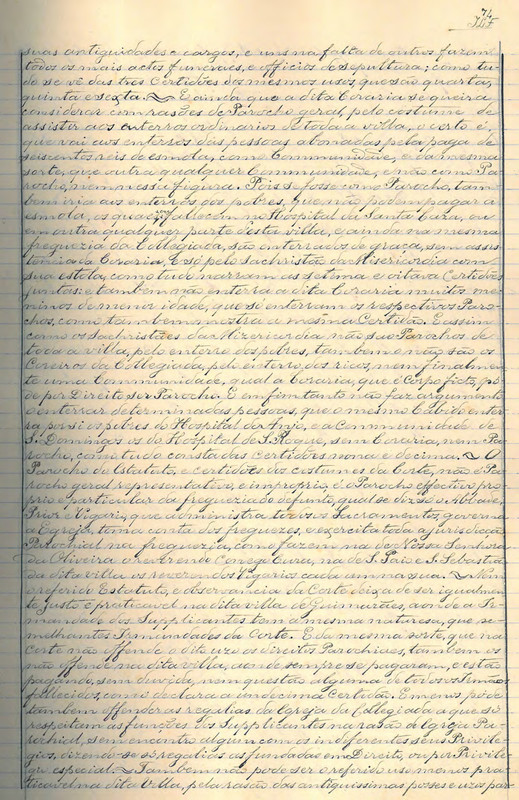 74
suas antiguidades e cargos, e uns na falta de outros fazem
todos os mais actos funeraes, e officios de sepultura; como tu-
do se vê das tres Certidões dos mesmos usos, que são quarta,
quinta e sexta. E ainda que a dita Coraria se queira
considerar com rasões de Parocho geral, pelo costume de
assistir aos enterros ordinarios de toda a villa, o certo é,
que vai aos enterros das pessoas abonadas pela paga de
seiscentos reis de esmola, como Communidade, e da mesma
sorte, que outra qualquer Communidade, e não como Pa-
rocho, nem nessa figura. Pois se fosse como Parocho, tam-
bem iria aos enterros dos pobres, que não podem pagar a
esmola, os quaes fallecem no Hospital da Santa Caza, ou
em outra qualquer parte desta villa, e ainda na mesma
freguezia da Collegiada, são enterrados de graça, sem assis-
tencia da Coraria. E só pelo Sachristão da Misericordia com
sua estola, como tudo narram as setima e oitava Certidões
juntas: e tambem não enterra a dita Coraria muitos me-
ninos de menor idade, que só enterram os respectivos Paro-
chos, como tambem mostra a mesma Certidão. E assim
como os Sachristães da Mizericordia não são Parochos de
toda a villa, pelo enterro dos pobres, tambem o não são os
Coreiros da Collegiada, pelo enterro dos ricos, nem finalmen-
te uma Communidade, qual a Coraria, que é Corpo ficto, pó-
de por Direito ser Parocho. E em fim tanto não faz argumento
o enterrar determinadas pessoas, que o mesmo Cabido enter-
ra por si os pobres do Hospital do Anjo, e a Communidade de
S. Domingos os do Hospital de S. Roque, sem Coraria, nem Pa-
rocho, como tudo consta das Certidões nona e decima. O
Parocho do Estatuto, e certidões dos costumes da Corte, não é Pa-
rocho geral representativo, e improprio, é o Parocho effectivo pro-
prio e particular da freguezia do defunto, qual se diz só o Abbade,
Prior e Vigario, que administra todos os Sacramentos, governa
a Egreja, toma conta dos freguezes, e exercita toda a jurisdicção
Parochial na freguezia, como fazem na de Nossa Senhora
da Oliveira o reverendo Conego Cura, na de S. Paio e S. Sebastião
da dita villa os reverendos Vigarios cada um na sua. Nem
o referido Estatuto, e observancia da Corte deixa de ser igualmen-
te justo e praticavel na dita villa de Guimarães, aonde a Ir-
mandade dos Supplicantes tem a mesma natureza, que se-
melhantes Irmandades da Corte. E da mesma sorte, que na
Corte não offende o dito uzo os direitos Parochiaes, tambem os
não offende na dita villa, aonde sempre se pagaram, e estão
pagando, sem duvida, nem questão alguma de todos os Irmãos
fallecidos, como declara a undecima Certidão. E menos póde
tambem offender as regalias da Egreja da Collegiada a que só
respeitam as funções dos Supplicantes na rasão de Egreja Pa-
rochial, sem encontro algum com os indiferentes seus Privile-
gios, dizendo-se só regalias as fundadas em Direito, ou por Privile-
gio especial. Tambem não pode ser o referido uso menos pra-
ticavel na dita Villa, pela rasão das antiquissimas posses e uzos par-